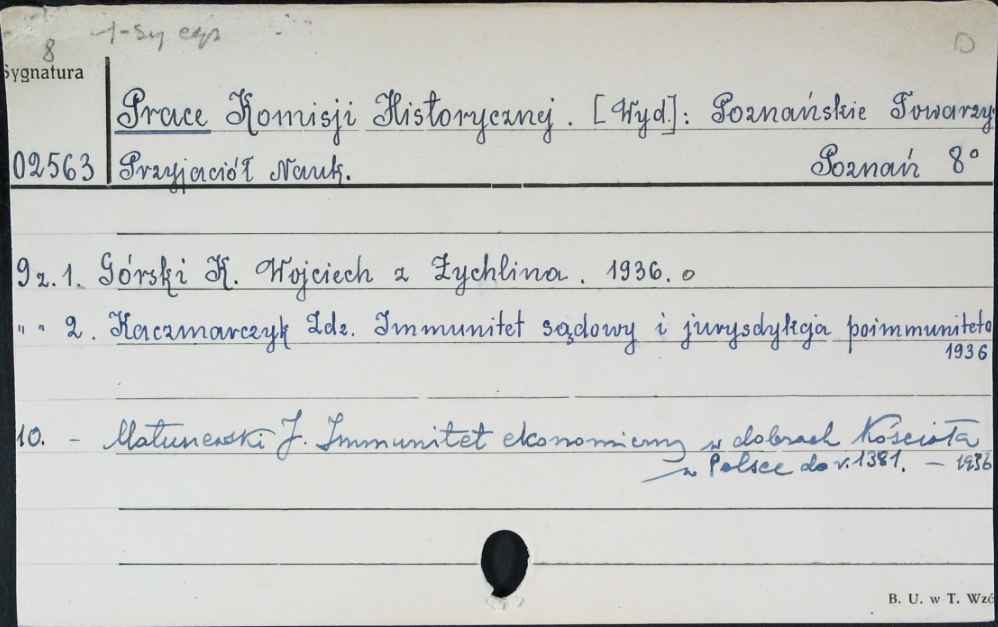 8 1-sy egz
Sygnatura
Prace Komisji Historycznej. [Wyd.]: Poznańskie Towarzys
02563 Przyjaciół Nauk. Poznań 8°
9 z. 1. Górski K. Wojciech z Żychlina. 1936. o
" " 2. Kaczmarczyk Zdz. Immunitet sądowy i jurysdykcja poimmuniteto
1936
10. - Matuszewski J. Immunitet ekonomiczny w dobrach Kościoła
w Polsce do r. 1381. – 1936
B. U. w T. Wzó